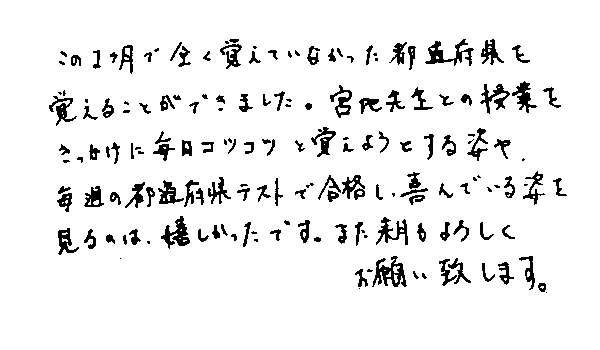 この1ヶ月で全く覚えていなかった都道府県を
覚えることができました。宮地先生との授業を
きっかけに毎日コツコツと覚えようとする姿や、
毎週の都道府県テストで合格し、喜んでいる姿を
見るのは、嬉しかったです。また来月もよろしく
お願い致します。